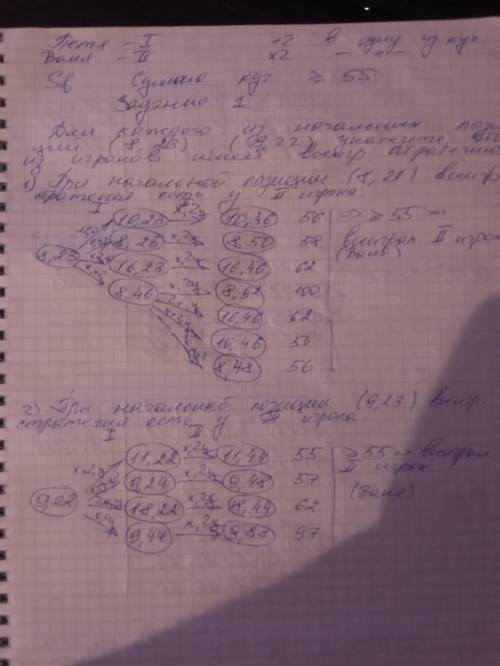 Петя – I +2 в одну из куч
Ваня – II ×2 — " —
Sб. Сумма куч ≥ 55
Задание 1
Для каждой из начальных пози
ции (8, 23) (9, 22) укажите,
из игроков имеет выигр стратегию
1) При начальной позиции (8, 23) выигр.
стратегия есть у II игрока:
I
10,23 x, 2y 10,46 56 ⇒ ≥ 55 ⇒
8,23 8,25 x, 2y 8,50 58 выиграл II игрок
16,23 x, 2y 16,46 62 (Ваня)
8,46 8,92 100
16,46 62
10,46 56
8,48 56
2) При начальной позиции (9,23) выигр.
стратегия есть у II игрока
I II
11,22 x, 2y 11,44 55 ≥ 55 ⇒ выиграл
9,24 x, 2y 9,48 57 II игрок
9,22 18,22 x, 2y 18,44 62 (Ваня)
9,44 x, 2y 9,88 97